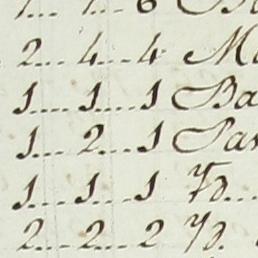 1... 1... 6
2... 4... 4
1... 1... 1 Ba
1... 2... 1 Pa
1... 1... 1 Yd...
2... 2... 2 Yd.